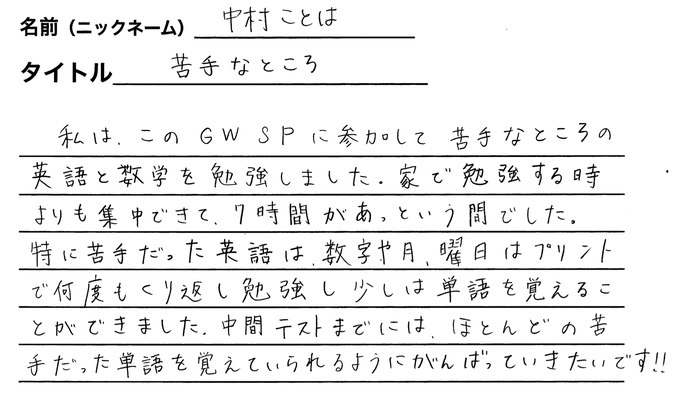 名前（ニックネーム） 中村ことは
タイトル 苦手なところ
私は、このGWSPに参加して苦手なところの
英語と数学を勉強しました。家で勉強する時
よりも集中できて、7時間があっという間でした。
特に苦手だった英語は、数字や月、曜日はプリント
で何度もくり返し勉強し少しは単語を覚えるこ
とができました。中間テストまでには、ほとんどの苦
手だった単語を覚えていられるようにがんばっていきたいです!!